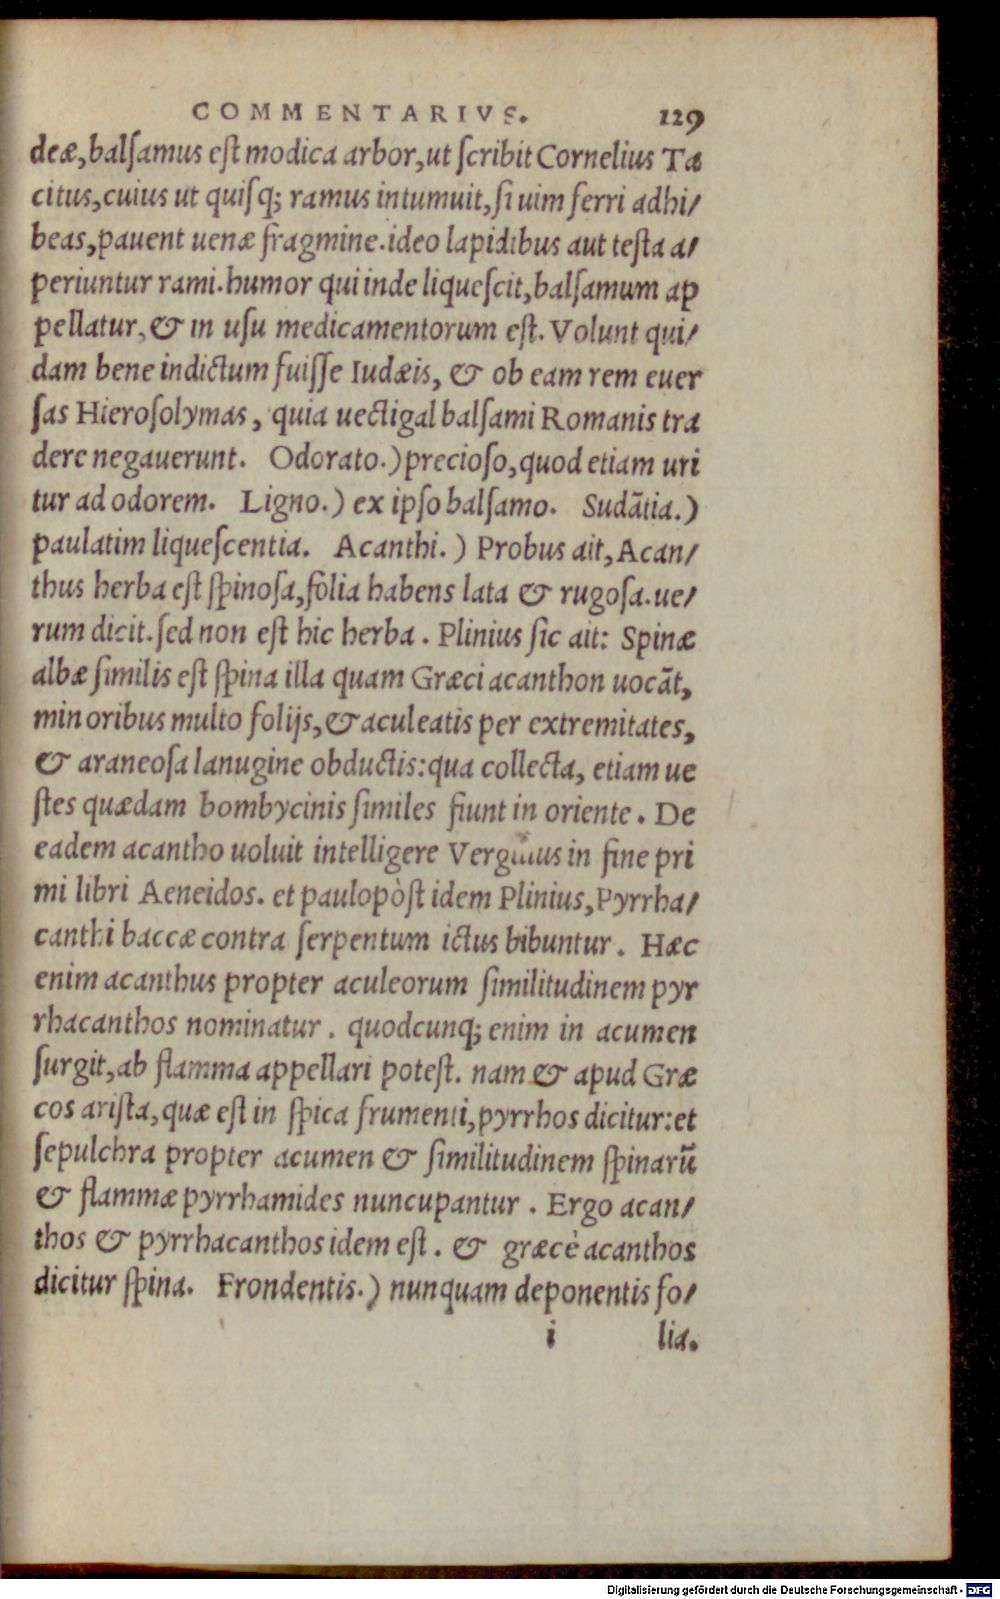 COMMENTARIVS. 129
deæ, balſamus eſt modica arbor, ut ſcribit Cornelius Ta
citus, cuius ut quiſq; ramus intumuit, ſi uim ferri adhi/
beas, pauent uenæ fragmine. ideo lapidibus aut teſta a/
periuntur rami. humor qui inde liqueſcit, balſamum ap
pellatur, & in uſu medicamentorum eſt. Volunt qui/
dam bene indictum fuiſſe Iudæis, & ob eam rem euer
ſas Hieroſolymas, quia uectigal balſami Romanis tra
dere negauerunt. Odorato.) precioſo, quod etiam uri
tur ad odorem. Ligno.) ex ipſo balſamo. Sudãtia.)
paulatim liqueſcentia. Acanthi.) Probus ait, Acan/
thus herba eſt ſpinoſa, folia habens lata & rugoſa. ue/
rum dicit. ſed non eſt hic herba. Plinius ſic ait: Spinæ
albæ ſimilis eſt ſpina illa quam Græci acanthon uocãt,
minoribus multo folijs, & aculeatis per extremitates,
& araneoſa lanugine obductis: qua collecta, etiam ue
ſtes quædam bombycinis ſimiles fiunt in oriente. De
eadem acantho uoluit intelligere Vergilius in fine pri
mi libri Aeneidos. et paulopòſt idem Plinius, Pyrrha/
canthi baccæ contra ſerpentum ictus bibuntur. Hæc
enim acanthus propter aculeorum ſimilitudinem pyr
rhacanthos nominatur. quodcunq; enim in acumen
ſurgit, ab flamma appellari poteſt. nam & apud Græ
cos ariſta, quæ eſt in ſpica frumenti, pyrrhos dicitur: et
ſepulchra propter acumen & ſimilitudinem ſpinarũ
& flammæ pyrrhamides nuncupantur. Ergo acan/
thos & pyrrhacanthos idem eſt. & græcè acanthos
dicitur ſpina. Frondentis.) nunquam deponentis fo/
i lia.
Digitalisierung gefördert durch die Deutsche Forschungsgemeinschaft - DFG